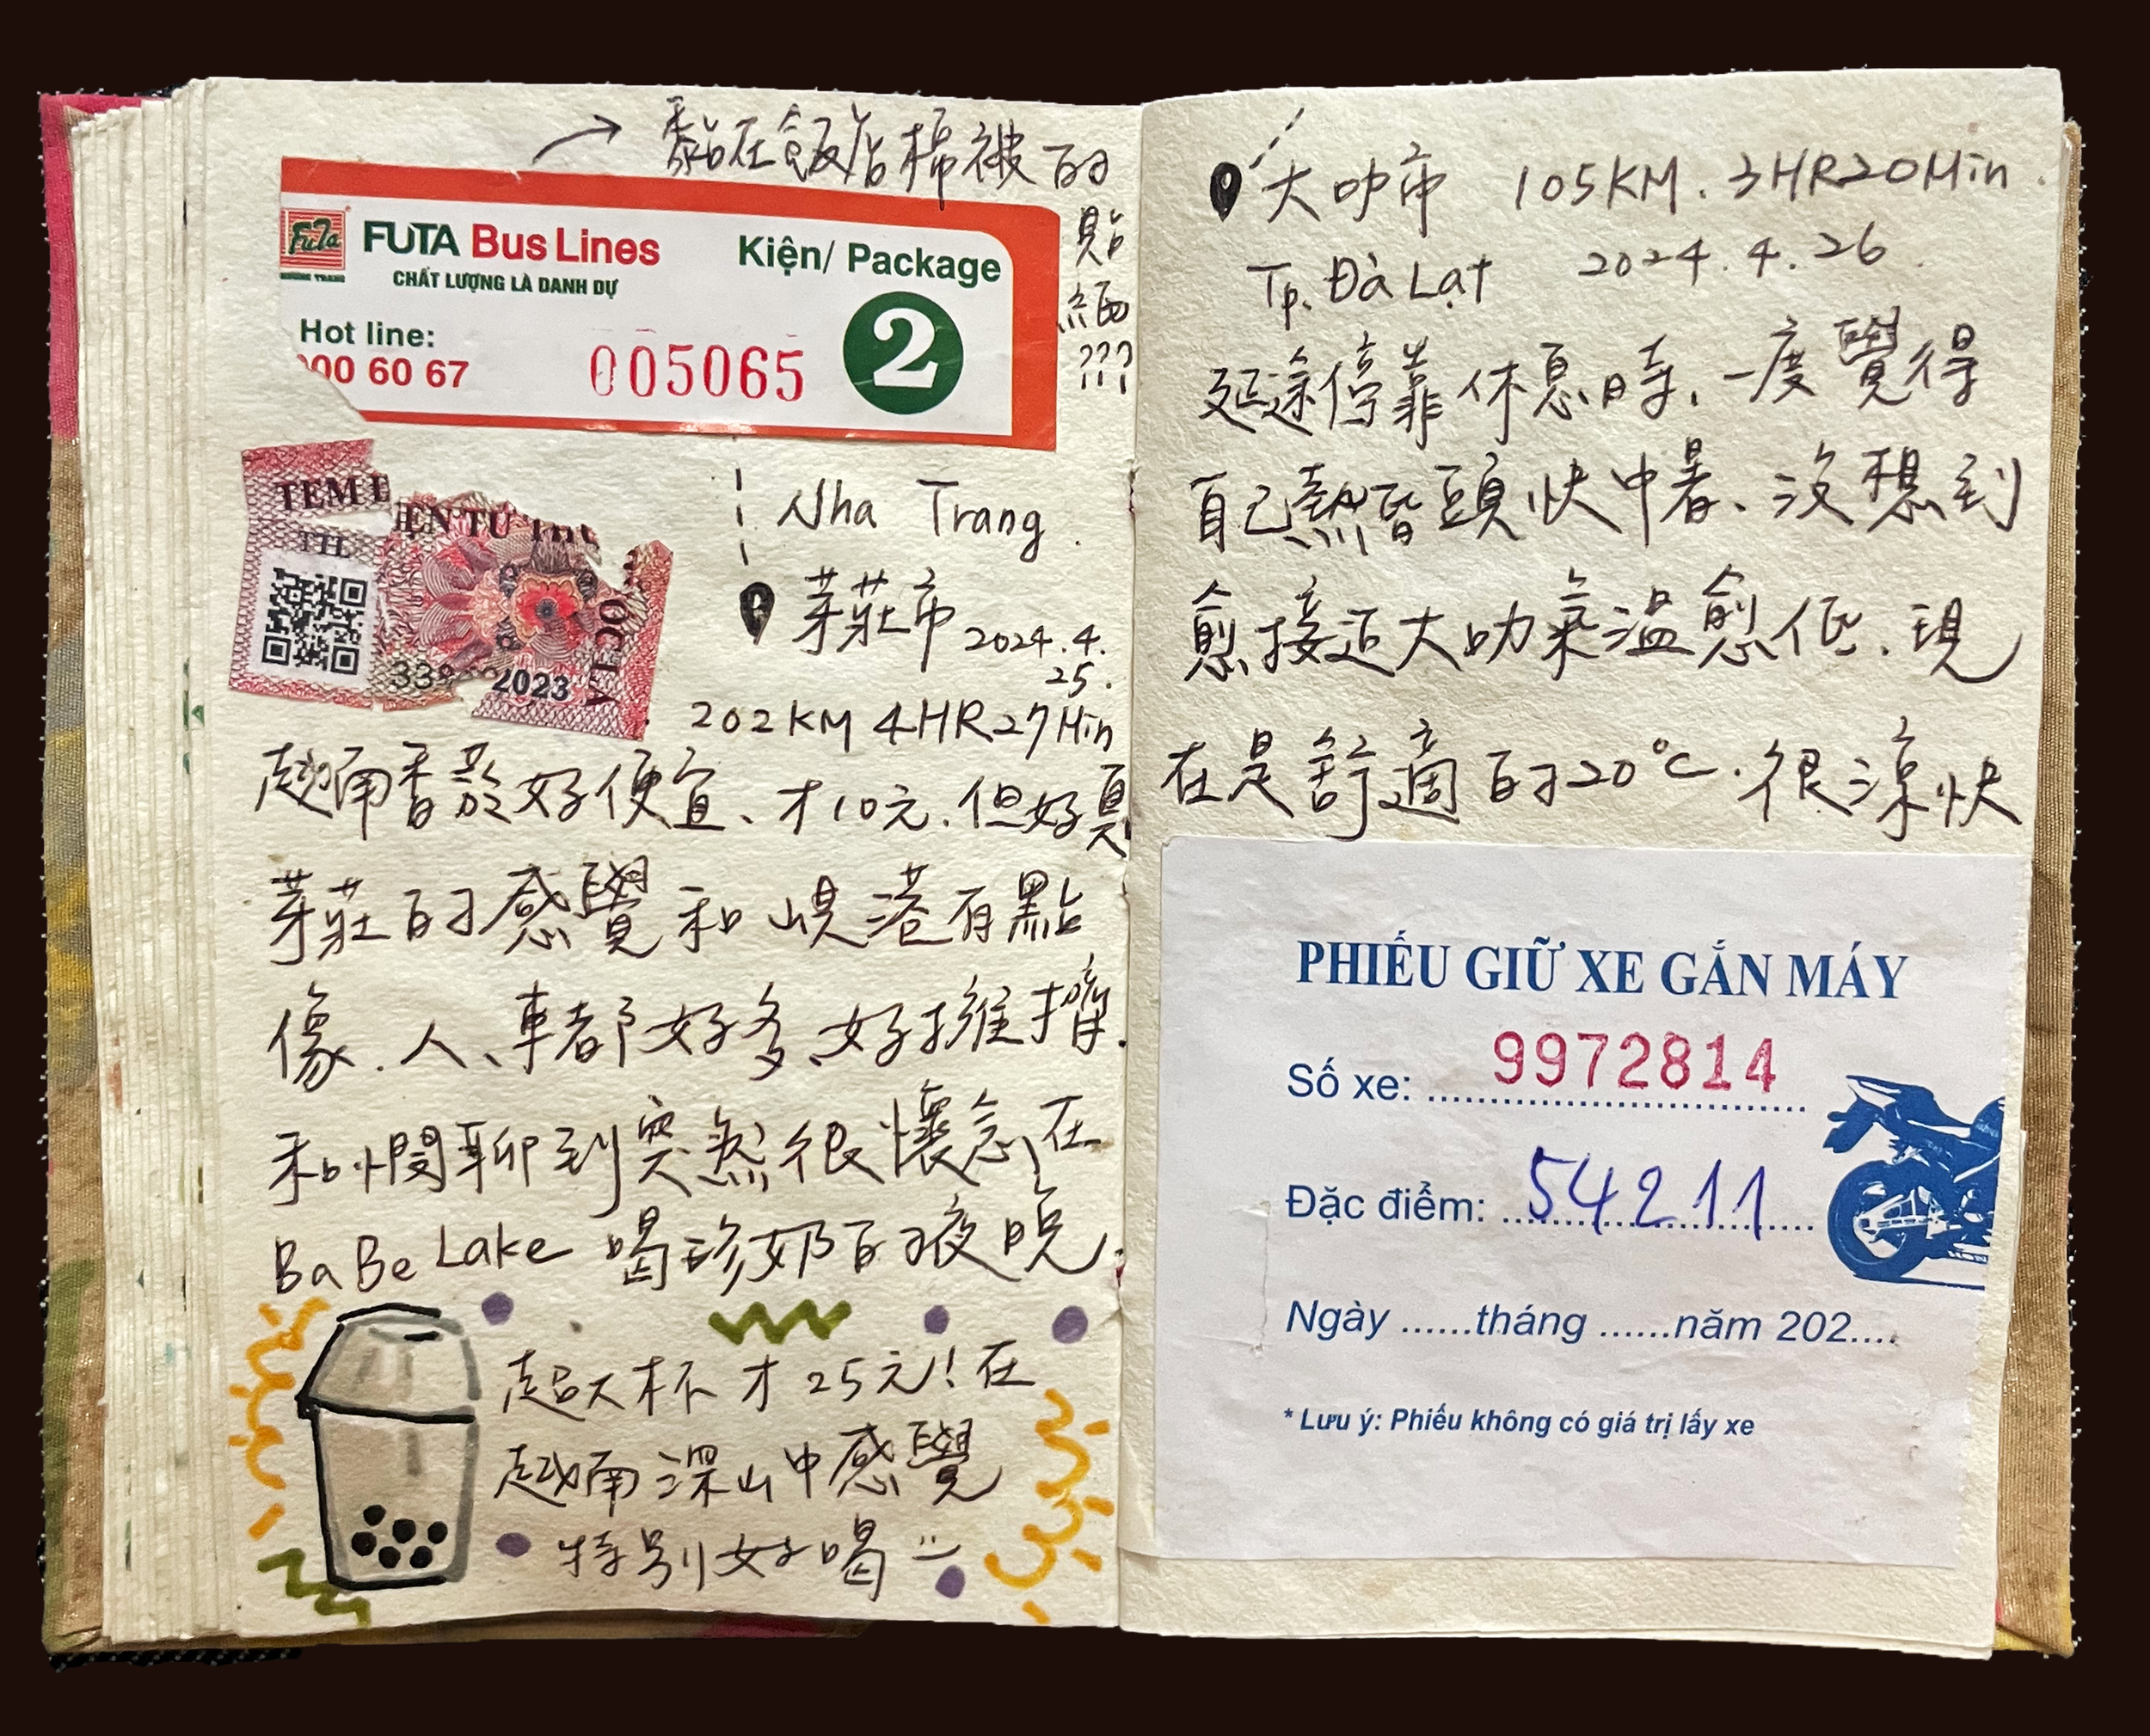 黏在飯店棉被的
貼紙
???
FUTA Bus Lines
Kiện/ Package
CHẤT LƯỢNG LÀ DANH DỰ
Hot line:
00 60 67
005065
2
TEM
TTĐL
2023
Nha Trang
芽莊市 2024.4.
25.
202KM 4HR27Min
越南香菸好便宜、才10元.但好臭
芽莊的感覺和峴港有點
像.人、車都好多、好擁擠.
和憫聊到突然很懷念在
BaBe Lake 喝珍奶的夜晚.
超大杯才25元!在
越南深山中感覺
特別好喝
大叻市 105KM. 3HR20Min.
Tp. Đà Lạt 2024.4.26.
延途停靠休息時、一度覺得
自己熱昏頭快中暑、沒想到
愈接近大叻氣溫愈低、現
在是舒適的20°C.很涼快
PHIẾU GIỮ XE GẮN MÁY
Số xe: 9972814
Đặc điểm: 54211
Ngày ......tháng ......năm 202....
* Lưu ý: Phiếu không có giá trị lấy xe